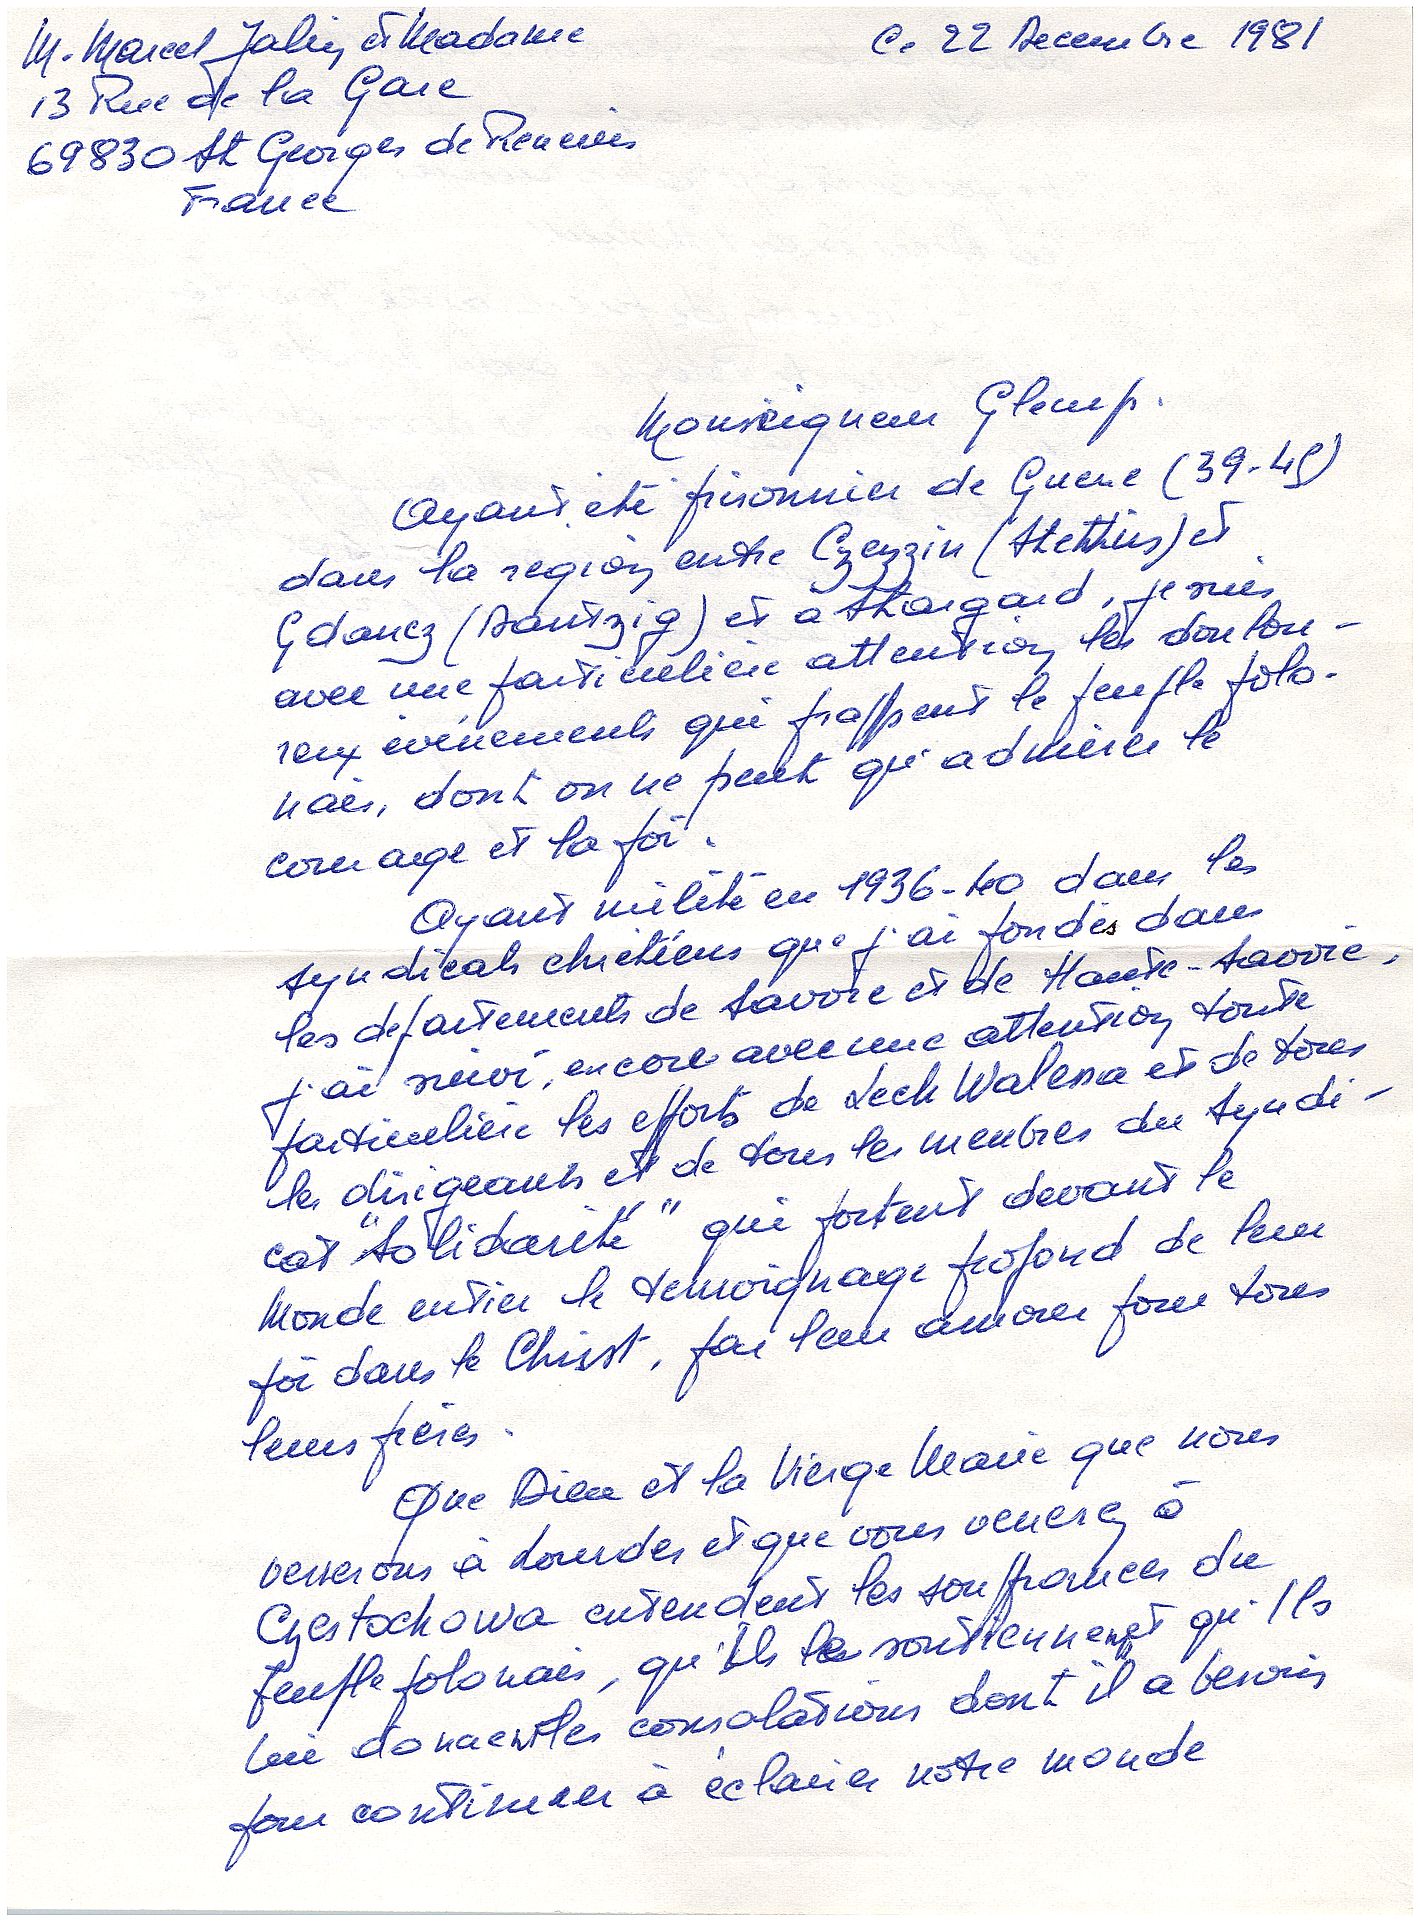 M. Marcel Jalin et Madame
Ce 22 Decembre 1981
13 Rue de la Gare
69830 St Georges de Reneins
France
Monseigneur Glemp.
Ayant été prisonnier de Guerre (39-45)
dans la region entre Czezzin (Stettins) et
Gdancz (Dantzig) et à Stargard, je suis
avec une particulière attention les doulou-
reux évènements qui frappent le peuple polo-
nais, dont on ne peut qu'admirer le
courage et la foi.
Ayant milité en 1936-40 dans les
syndicats chrétiens que j'ai fondés dans
les departements de Savoie et de Haute-Savoie,
j'ai suivi, encore avec une attention toute
particulière les efforts de Lech Walessa et de tous
les dirigeants et de tous les membres du Syndi-
cat "Solidarité" qui portent devant le
Monde entier le temoignage profond de leur
foi dans le Christ, par leur amour pour tous
leurs frères.
Que Dieu et la Vierge Marie que nous
venerons à Lourdes et que vous venerez à
Czestochowa entendent les souffrances du
Peuple polonais, qu'Ils le soutiennent qu'Ils
lui donnent les consolations dont il a besoin
pour continuer à éclairer notre monde